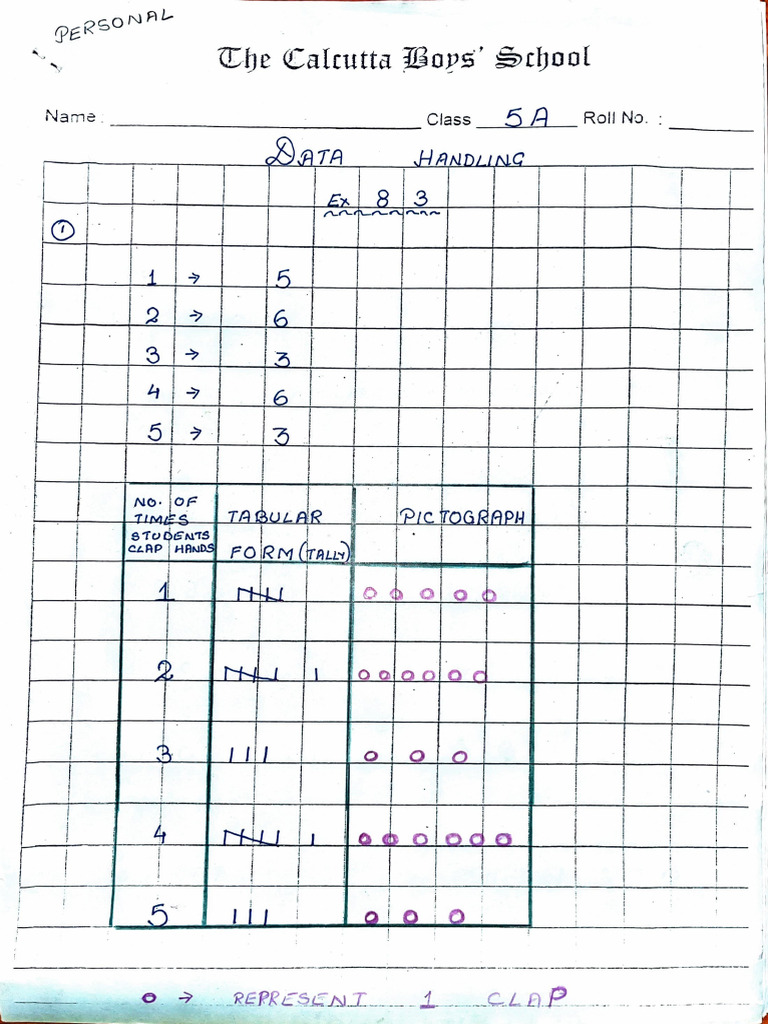 PERSONAL
The Calcutta Boys' School
Name : Class 5A Roll No. :
DATA HANDLING
Ex 8 3
1
1 → 5
2 → 6
3 → 3
4 → 6
5 → 3
NO. OF
TIMES TABULAR PICTOGRAPH
STUDENTS
CLAP HANDS FORM (TALLY)
1
2
3
4
5
o → REPRESENT 1 CLAP